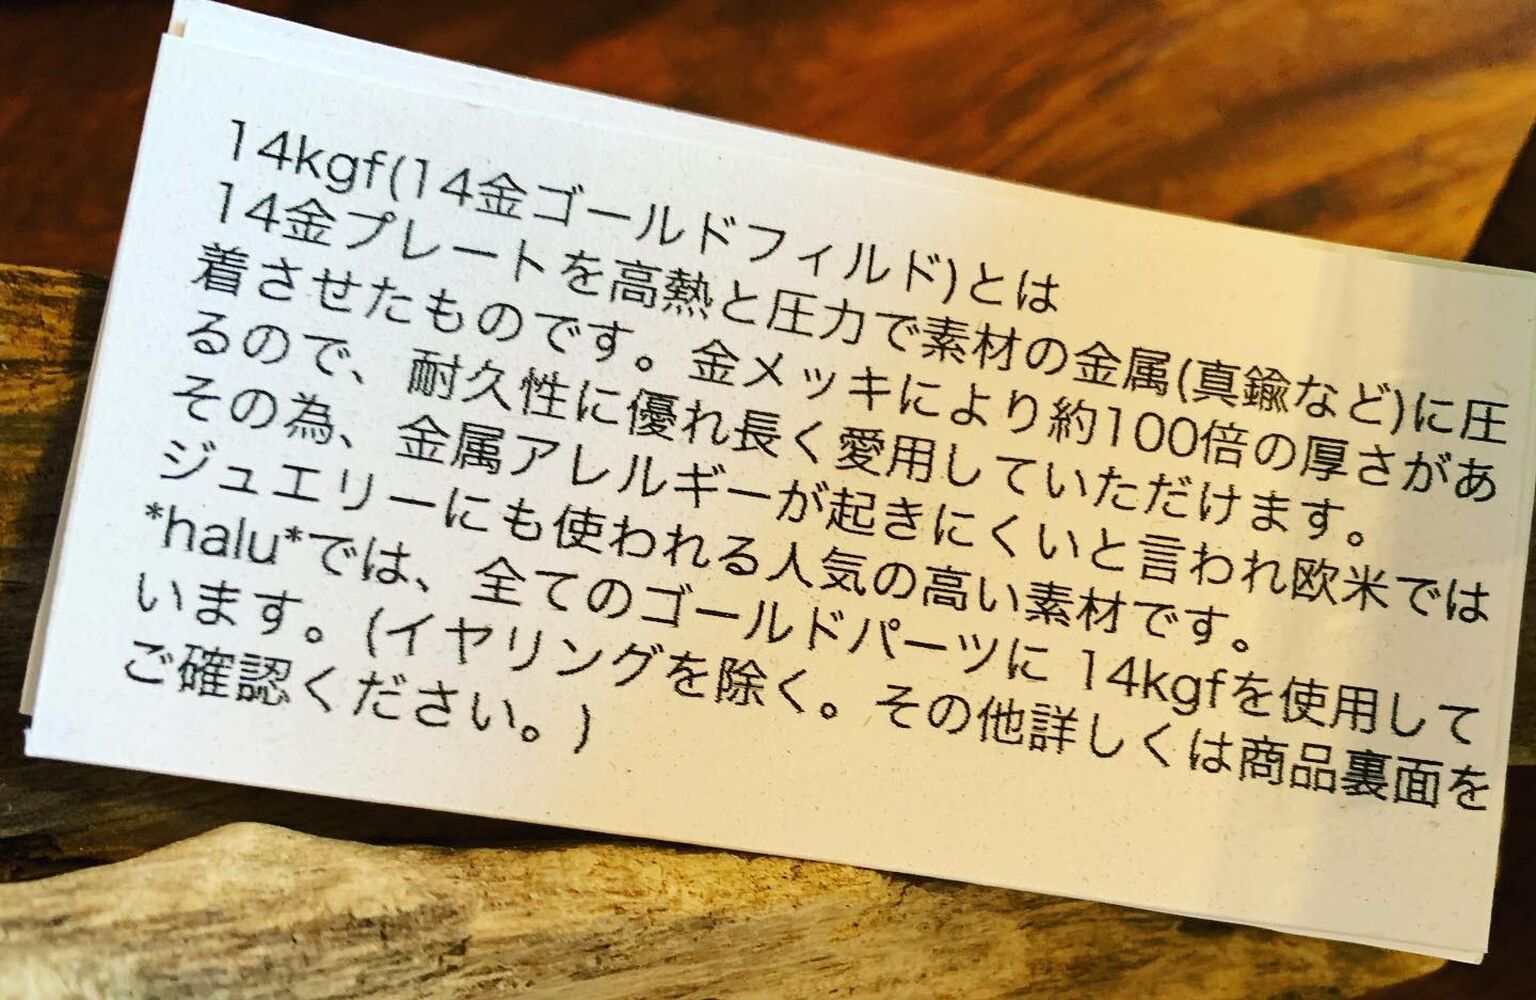 14kgf(14金ゴールドフィルド)とは
14金プレートを高熱と圧力で素材の金属(真鍮など)に圧
着させたものです。金メッキにより約100倍の厚さがあ
るので、耐久性に優れ長く愛用していただけます。
その為、金属アレルギーが起きにくいと言われ欧米では
ジュエリーにも使われる人気の高い素材です。
*halu*では、全てのゴールドパーツに 14kgfを使用して
います。(イヤリングを除く。その他詳しくは商品裏面を
ご確認ください。)